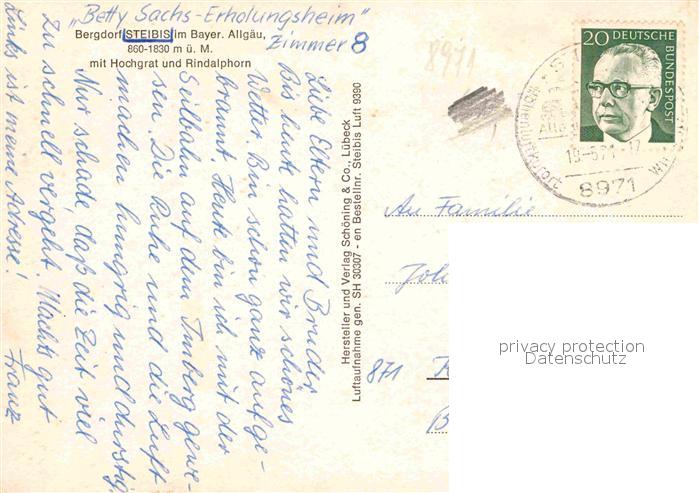 „Betty Sachs-Erholungsheim"
Zimmer 8
Bergdorf STEIBIS im Bayer. Allgäu,
860-1830 m ü. M.
mit Hochgrat und Rindalphorn
Liebe Eltern und Bruder,
Bis heute hatten wir schönes
Wetter. Bin schon ganz aufge-
brannt. Heute bin ich mit der
Seilbahn auf dem Imberg gewe-
sen. Die Ruhe und die Luft
machen hungrig und durstig.
Nur schade, daß die Zeit viel
zu schnell vergeht. Machts gut
Links ist meine Adresse! Franz
Hersteller und Verlag Schöning & Co., Lübeck
Luftaufnahme gen. SH 30307 - en Bestellnr. Steibis Luft 9390
8971
20 DEUTSCHE
BUNDESPOST
Höhenluftkurort
8971
An Familie
871
privacy protection
Datenschutz